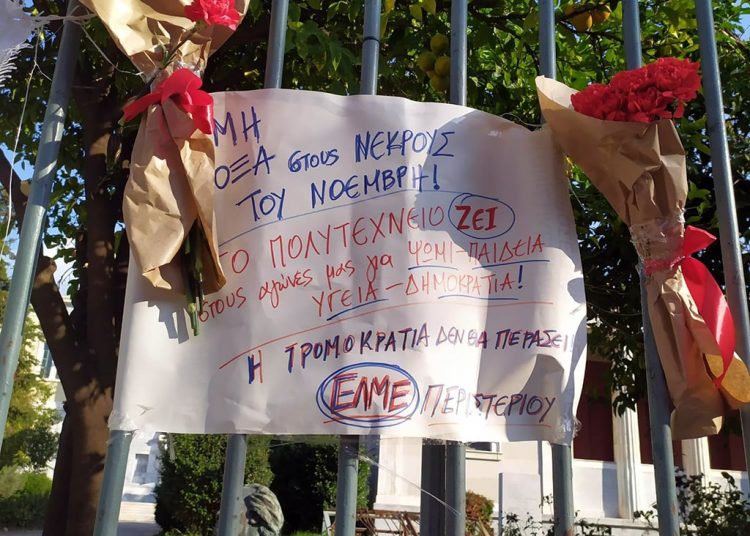 ΜΗ
ΟΞΑ στους ΝΕΚΡΟΥΣ
ΤΟΥ ΝΟΕΜΒΡΗ!
ΤΟ ΠΟΛΥΤΕΧΝΕΙΟ ΖΕΙ
στους αγώνες μας για ΨΩΜΙ-ΠΑΙΔΕΙΑ
ΥΓΕΙΑ-ΔΗΜΟΚΡΑΤΙΑ!
Η ΤΡΟΜΟΚΡΑΤΙΑ ΔΕΝ ΘΑ ΠΕΡΑΣΕΙ
ΕΛΜΕ ΠΕΡΙΣΤΕΡΙΟΥ